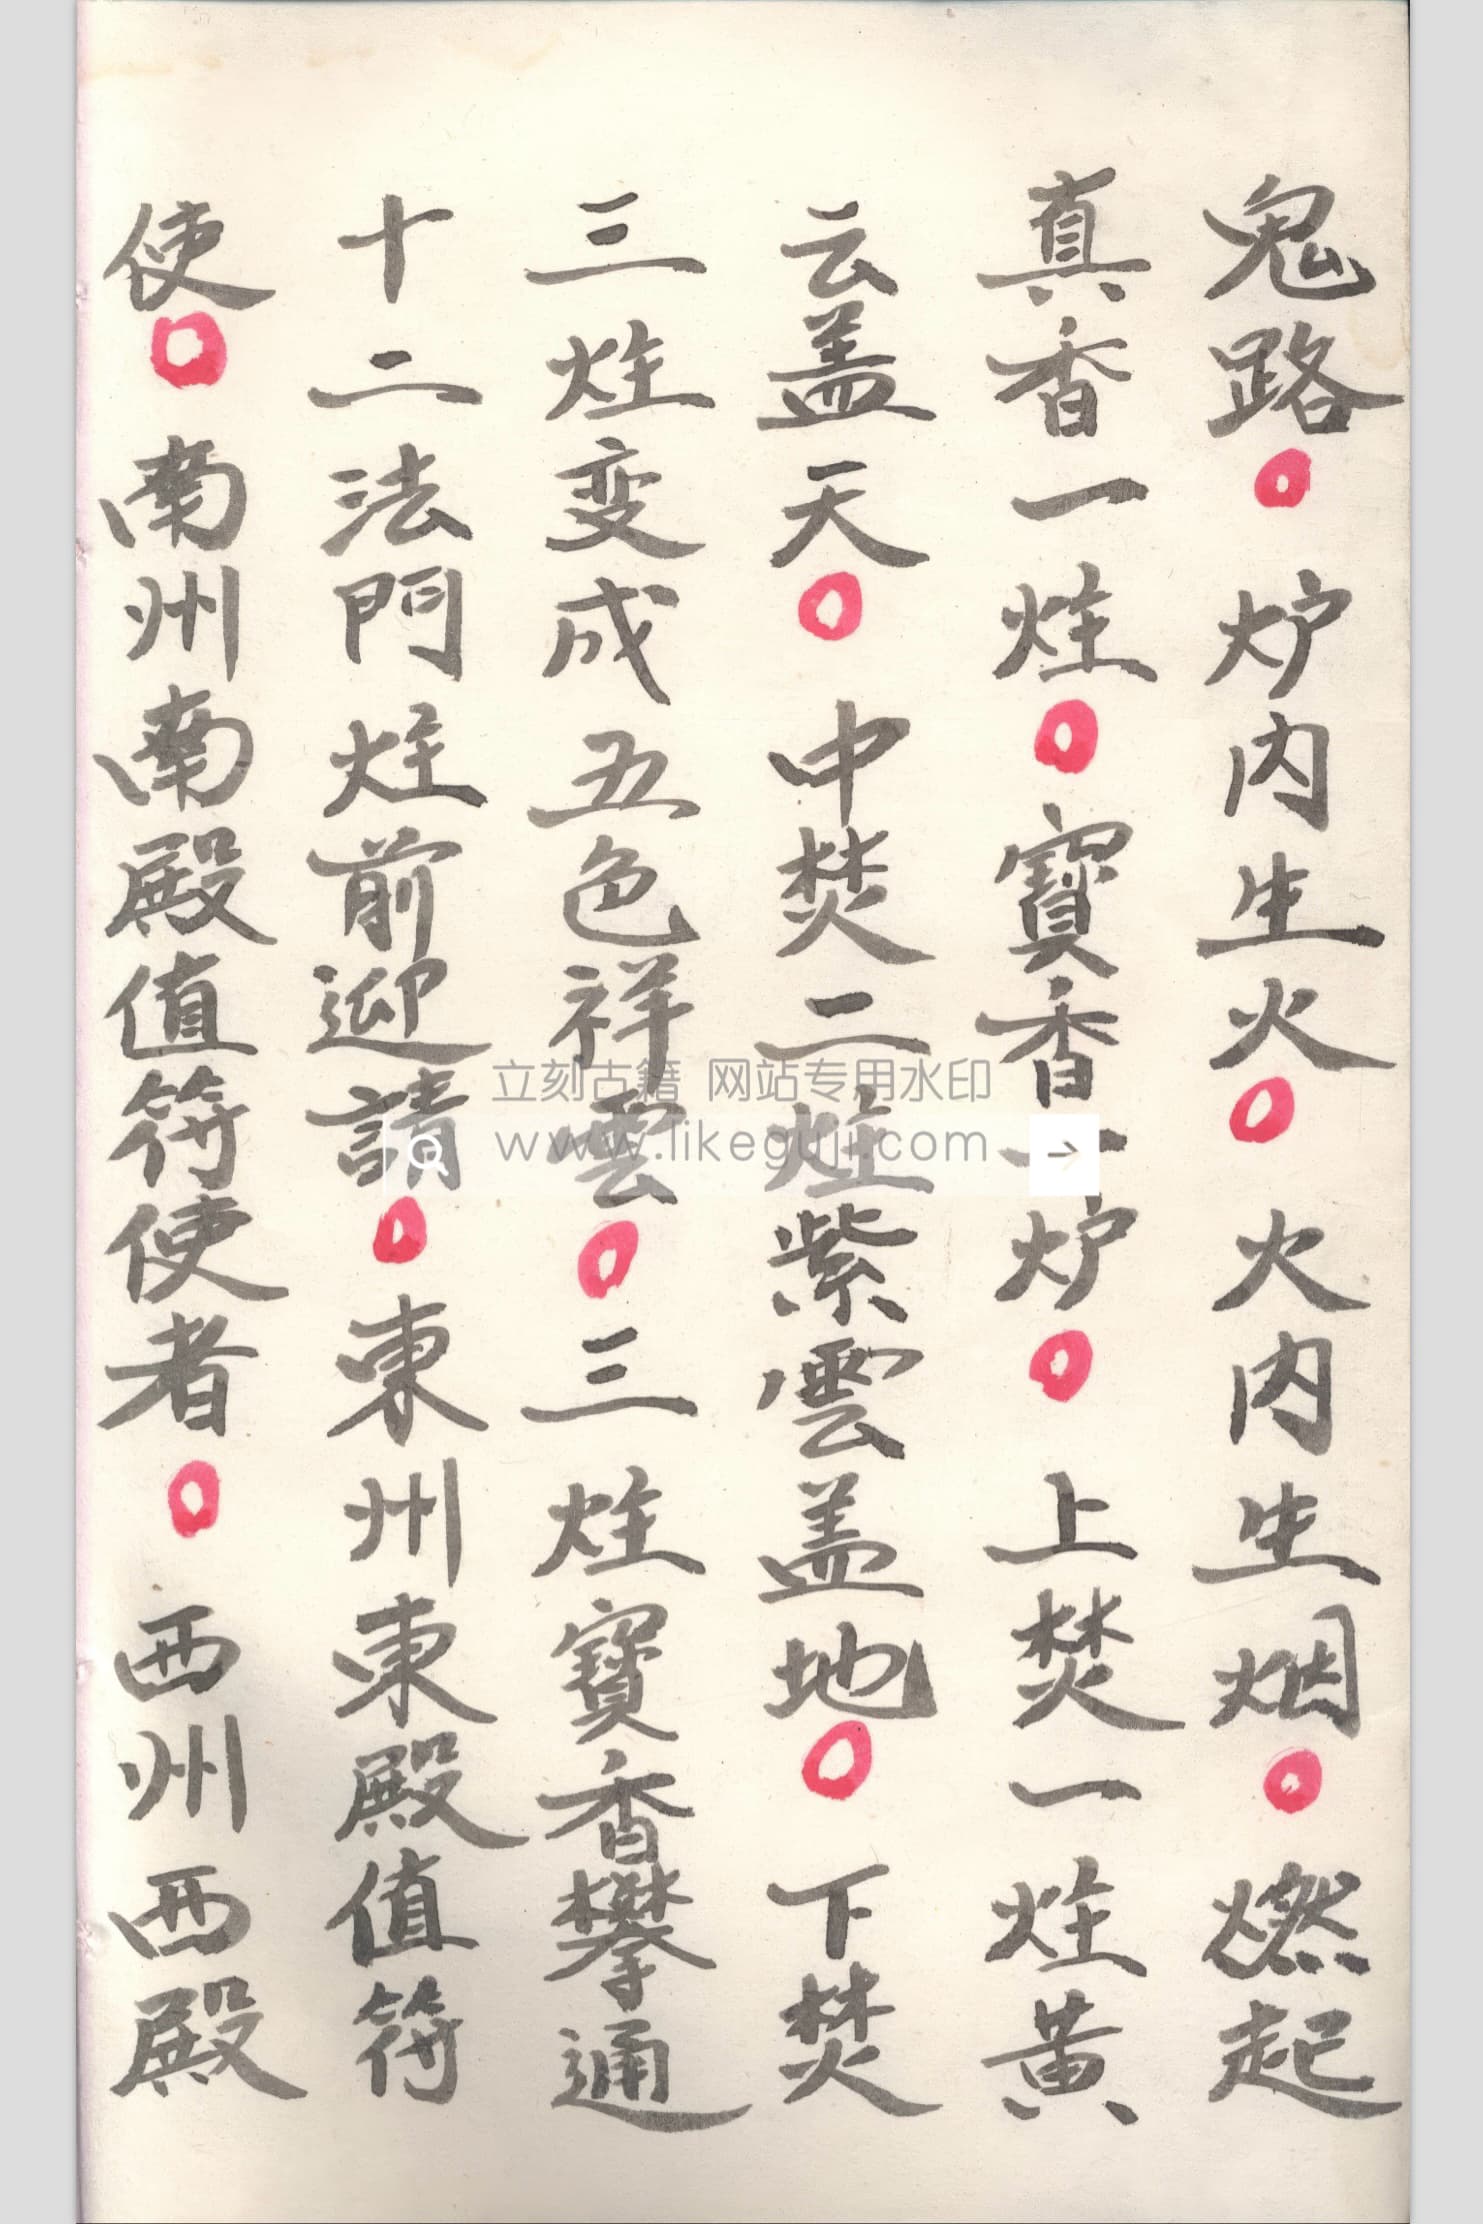 鬼路○炉内生火○火内生烟○燃起
真香一炷○寶香一炉○上焚一炷黄
云盖天○中焚二炷紫雲盖地○下焚
三炷变成五色祥雲○三炷寶香攀通
十二法門炷前迎請○東州東殿值符
使○南州南殿值符使者○西州西殿
立刻古籍 网站专用水印
www.likeguji.com